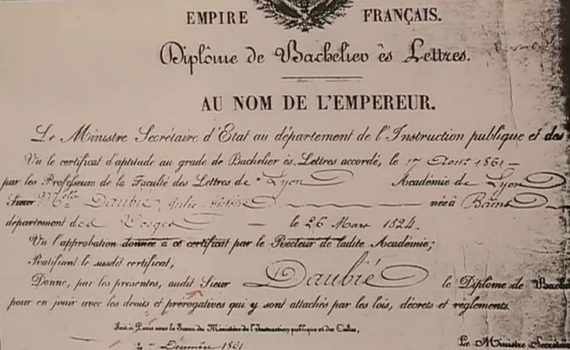 EMPIRE FRANÇAIS.
Diplôme de Bachelier ès Lettres.
AU NOM DE L'EMPEREUR.
Le Ministre Secrétaire d'État au département de l'Instruction publique et des
Vu le certificat d'aptitude au grade de Bachelier ès Lettres accordé, le 17 Août 1861
par les Professeurs de la Faculté des Lettres de Lyon Académie de Lyon
Sieur Melle Daubié Julie née à Bains
département des Vosges le 26 Mars 1824.
Vu l'approbation donnée à ce certificat par le Recteur de ladite Académie;
Ratifiant le susdit certificat,
Donne, par les présentes, audit Sieur Daubié le Diplôme de Bache
pour en jouir avec les droits et prérogatives qui y sont attachés par les lois, décrets et règlements.
Fait à Paris sous le Sceau du Ministère de l'Instruction publique et des Cultes,
Le Ministre Secrétaire